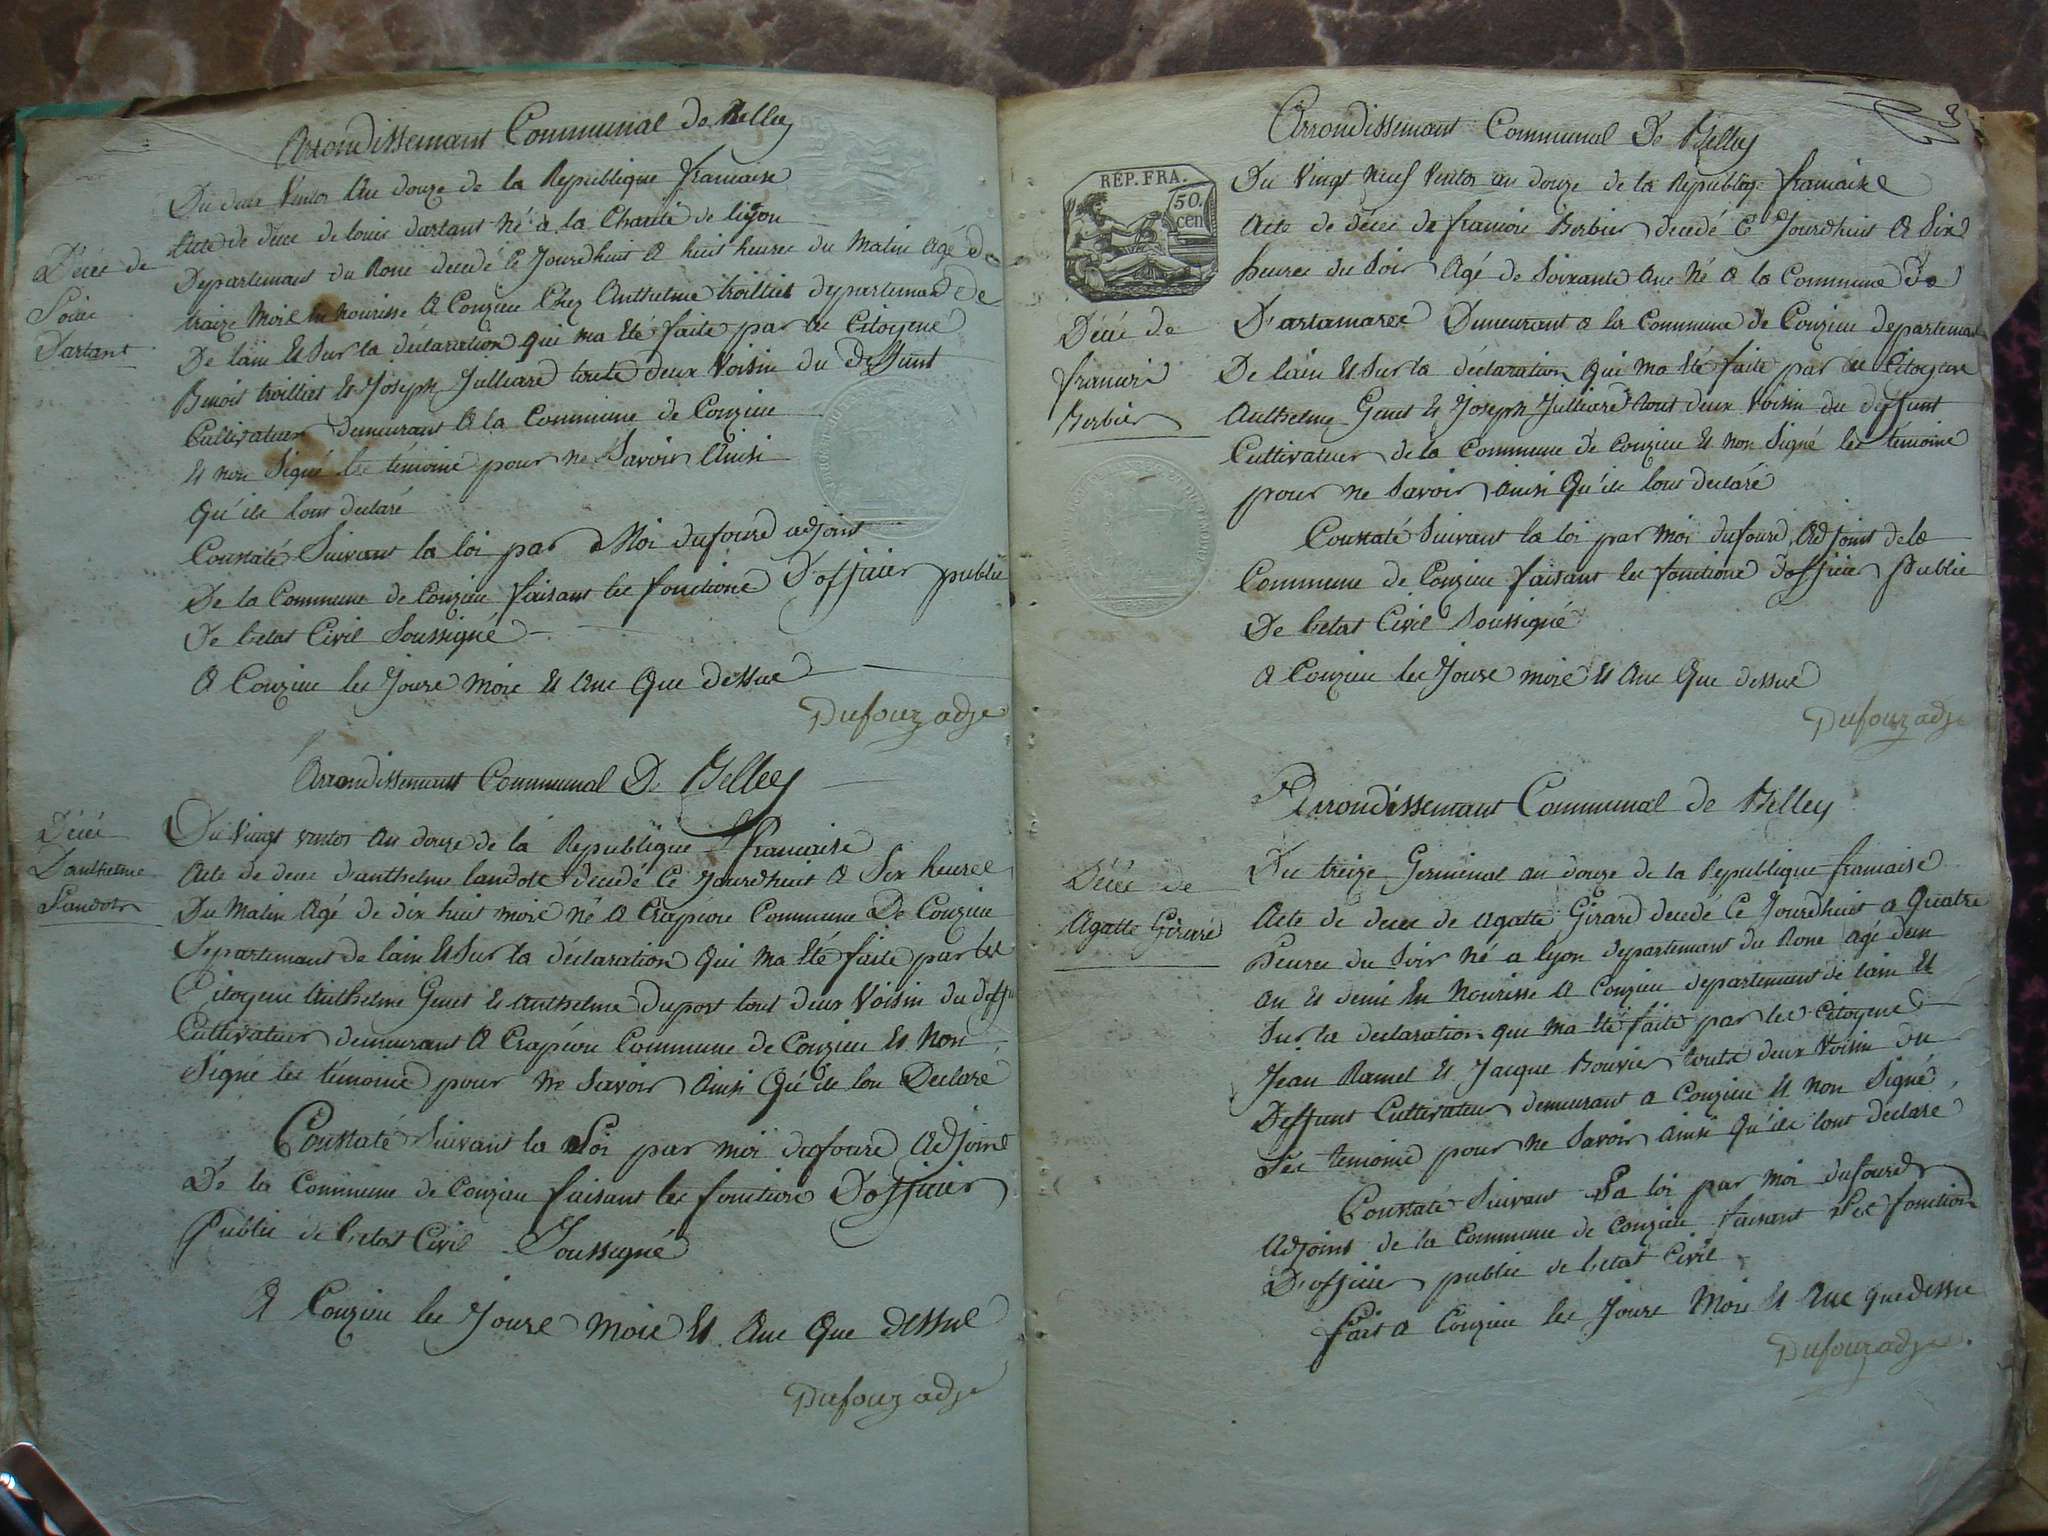 Arrondissemant Communal de Belley
Du deux Ventos An douze de la Republique francaise
Acte de déces de louis dartant Né a la Charité de liyon
Décès de
Louis
Dartant
Departemant du Rone decedé Ce Jourdhuit a huit heures du Matin Agé de
traize Mois En Nourisse a Conzieu Chez Anthelme troilliet departemand de
De lain Et Sur la déclaration qui ma Eté faite par les Citoyens
Benoit troilliet Et Joseph Julliard touts deux Voisin du deffunt
Cultivateur demeurant a la Commune de Conzieu
Et non Signé les témoins pour ne Savoir Ainsi
Qu'ils lont declaré
Constaté Suivant la loi par Moi dufourd adjoint
De la Commune de Conzieu faisant les fonctions D'officier public
De letat Civil Soussigné
A Conzieu les Jours Mois Et Ans Que dessus
Dufour adjt
Arrondissemant Communal De Belley
Décès
Danthelme
Landot
Du Vingt ventos An douze de la Republique francaise
Acte de deces danthelme landot decedé Ce Jourdhuit a Six heures
Du Matin Agé de dix huit mois né a Crapéou Commune De Conzieu
Departemant de lain Et Sur la déclaration Qui Ma Eté faite par les
Citoyens Anthelme Genet Et Anthelme Dupont tout deux Voisin du deffu
Cultivateur demeurant a Crapéou Commune de Conzieu Et Non
Signé les témoins pour ne Savoir Ainsi Qu'ils lon Declaré
Constaté Suivant la Loi par moi dufourd Adjoint
De la Commune de Conzieu faisant les fonctions D'officier
Public de letat Civil Soussigné
A Conzieu les Jours Mois Et Ans Que dessus
Dufour adjt
3
Arrondissemant Communal De Belley
RÉP. FRA.
50.
cen
Du Vingt Neuf Ventos an douze de la Republiqe francaise
Acte de déces de francois Berbier decedé Ce Jourdhuit a Six
heures du Soir Agé de Soixante Ans Né a la Commune De
Décès de
francois
Berbier
D'artamares Demeurant a la Commune de Conzieu departemant
De lain Et Sur la déclaration Qui Ma Eté faite par les Citoyens
Anthelme Genet Et Joseph Julliard tout deux Voisin du deffunt
Cultivateur de la Commune de Conzieu Et non Signé les témoins
pour ne Savoir Ainsi Qu'ils lont declaré
Constaté Suivant la loi par moi dufourd, Adjoint de la
Commune de Conzieu faisant les fonctions d'officier Public
De letat Civil Soussigné
A Conzieu les Jours mois Et Ans Que dessus
Dufour adjt
Arrondissemant Communal de Belley
Décès de
Agatte Girard
Du treize Germinal an douze de la Republique francaise
Acte de deces de agatte Girard decedé Ce Jourdhuit a Quatre
heures du Soir Né a lyon departemant du Rone agé dun
an Et demi En Nourisse a Conzieu departemant de lain Et
Sur la declaration que ma Eté faite par les Citoyens
Jean Ramel Et Jacque Bouvier touts deux Voisin du
Deffunt Cultivateur demeurant a Conzieu Et non Signé
Les temoins pour ne Savoir Ainsi Qu'ils lont déclaré
Constaté Suivant La loi par Moi dufourd
Adjoint de la Commune de Conzieu faisant Les fonctions
D'officier public de letat Civil
fait a Conzieu les Jours Mois Et Ans que dessus
Dufour adjt.